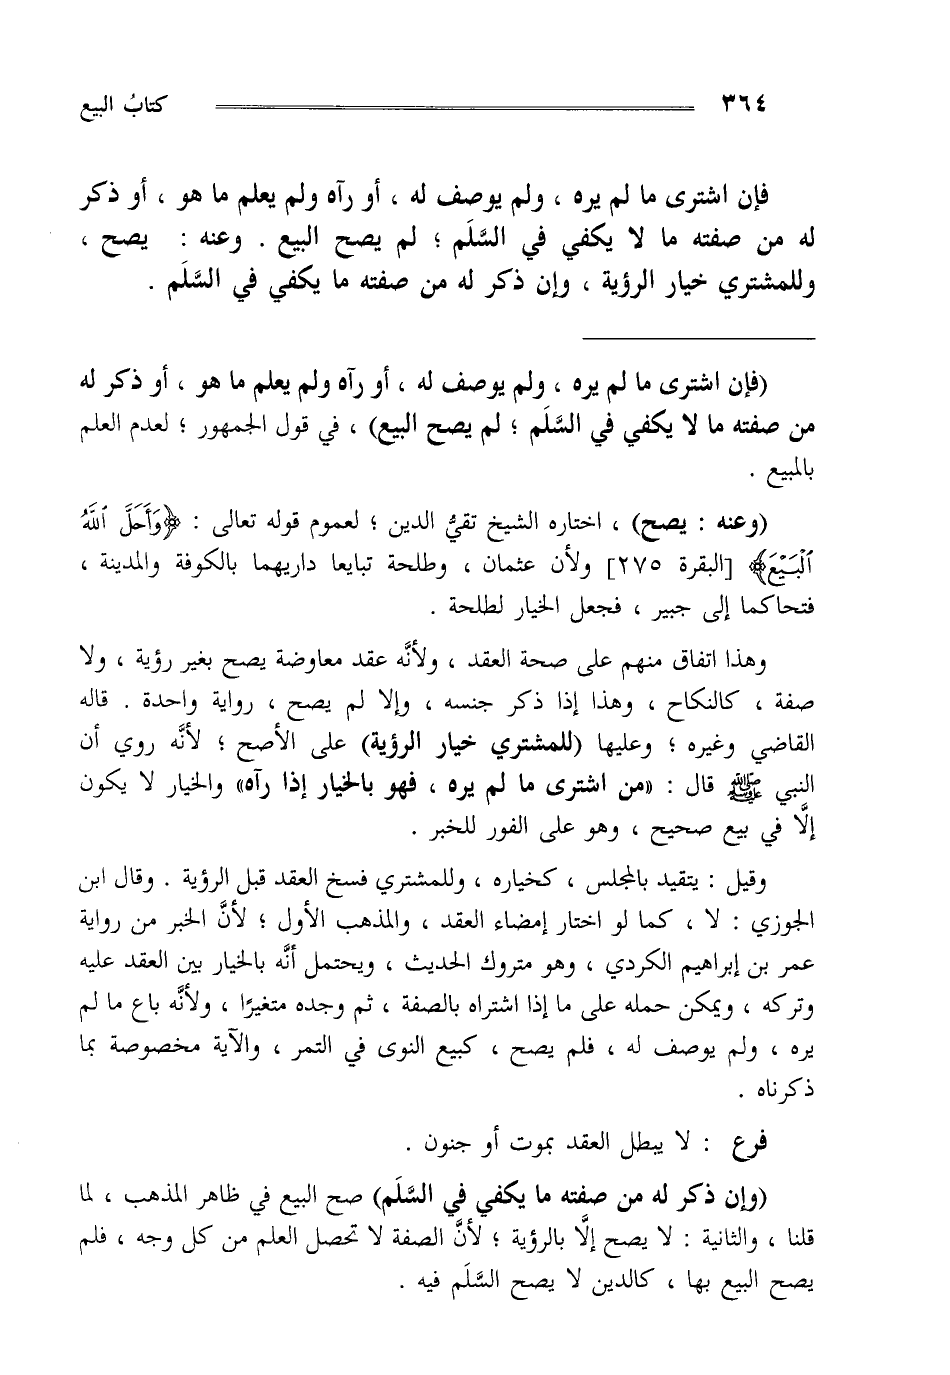 ٣٦٤ كتابُ البيع
فإن اشترى ما لم يره ، ولم يوصف له ، أو رآه ولم يعلم ما هو ، أو ذكر
له من صفته ما لا يكفي في السَّلَم ؛ لم يصح البيع . وعنه : يصح ،
وللمشتري خيار الرؤية ، وإن ذكر له من صفته ما يكفي في السَّلَم .
(فإن اشترى ما لم يره ، ولم يوصف له ، أو رآه ولم يعلم ما هو ، أو ذكر له
من صفته ما لا يكفي في السَّلَم ؛ لم يصح البيع) ، في قول الجمهور ؛ لعدم العلم
بالمبيع .
(وعنه : يصح) ، اختاره الشيخ تقيُّ الدين ؛ لعموم قوله تعالى : ﴿وَأَحَلَّ ٱللَّهُ
ٱلْبَيْعَ﴾ [البقرة ٢٧٥] ولأن عثمان ، وطلحة تبايعا داريهما بالكوفة والمدينة ،
فتحاكما إلى جبير ، فجعل الخيار لطلحة .
وهذا اتفاق منهم على صحة العقد ، ولأنَّه عقد معاوضة يصح بغير رؤية ، ولا
صفة ، كالنكاح ، وهذا إذا ذكر جنسه ، وإلا لم يصح ، رواية واحدة . قاله
القاضي وغيره ؛ وعليها (للمشتري خيار الرؤية) على الأصح ؛ لأنَّه روي أن
النبي ﷺ قال : «من اشترى ما لم يره ، فهو بالخيار إذا رآه» والخيار لا يكون
إلَّا في بيع صحيح ، وهو على الفور للخبر .
وقيل : يتقيد بالمجلس ، كخياره ، وللمشتري فسخ العقد قبل الرؤية . وقال ابن
الجوزي : لا ، كما لو اختار إمضاء العقد ، والمذهب الأول ؛ لأنَّ الخبر من رواية
عمر بن إبراهيم الكردي ، وهو متروك الحديث ، ويحتمل أنَّه بالخيار بين العقد عليه
وتركه ، ويمكن حمله على ما إذا اشتراه بالصفة ، ثم وجده متغيرًا ، ولأنَّه باع ما لم
يره ، ولم يوصف له ، فلم يصح ، كبيع النوى في التمر ، والآية مخصوصة بما
ذكرناه .
فرع : لا يبطل العقد بموت أو جنون .
(وإن ذكر له من صفته ما يكفي في السَّلَم) صح البيع في ظاهر المذهب ، لما
قلنا ، والثانية : لا يصح إلَّا بالرؤية ؛ لأنَّ الصفة لا تحصل العلم من كل وجه ، فلم
يصح البيع بها ، كالدين لا يصح السَّلَم فيه .